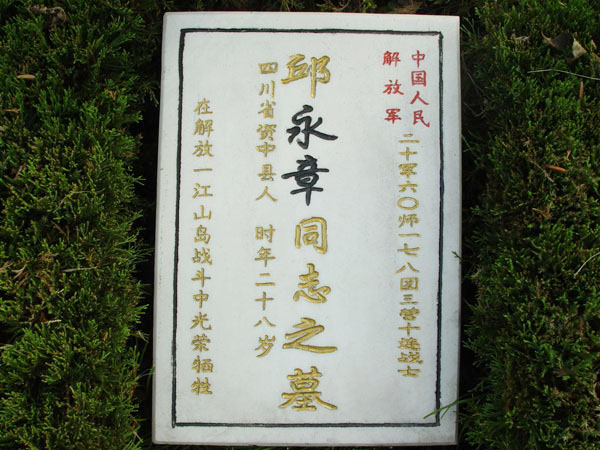 中国人民
解放军
二十军六〇师一七八团三营十连战士
邱永章同志之墓
四川省资中县人 时年二十八岁
在解放一江山岛战斗中光荣牺牲